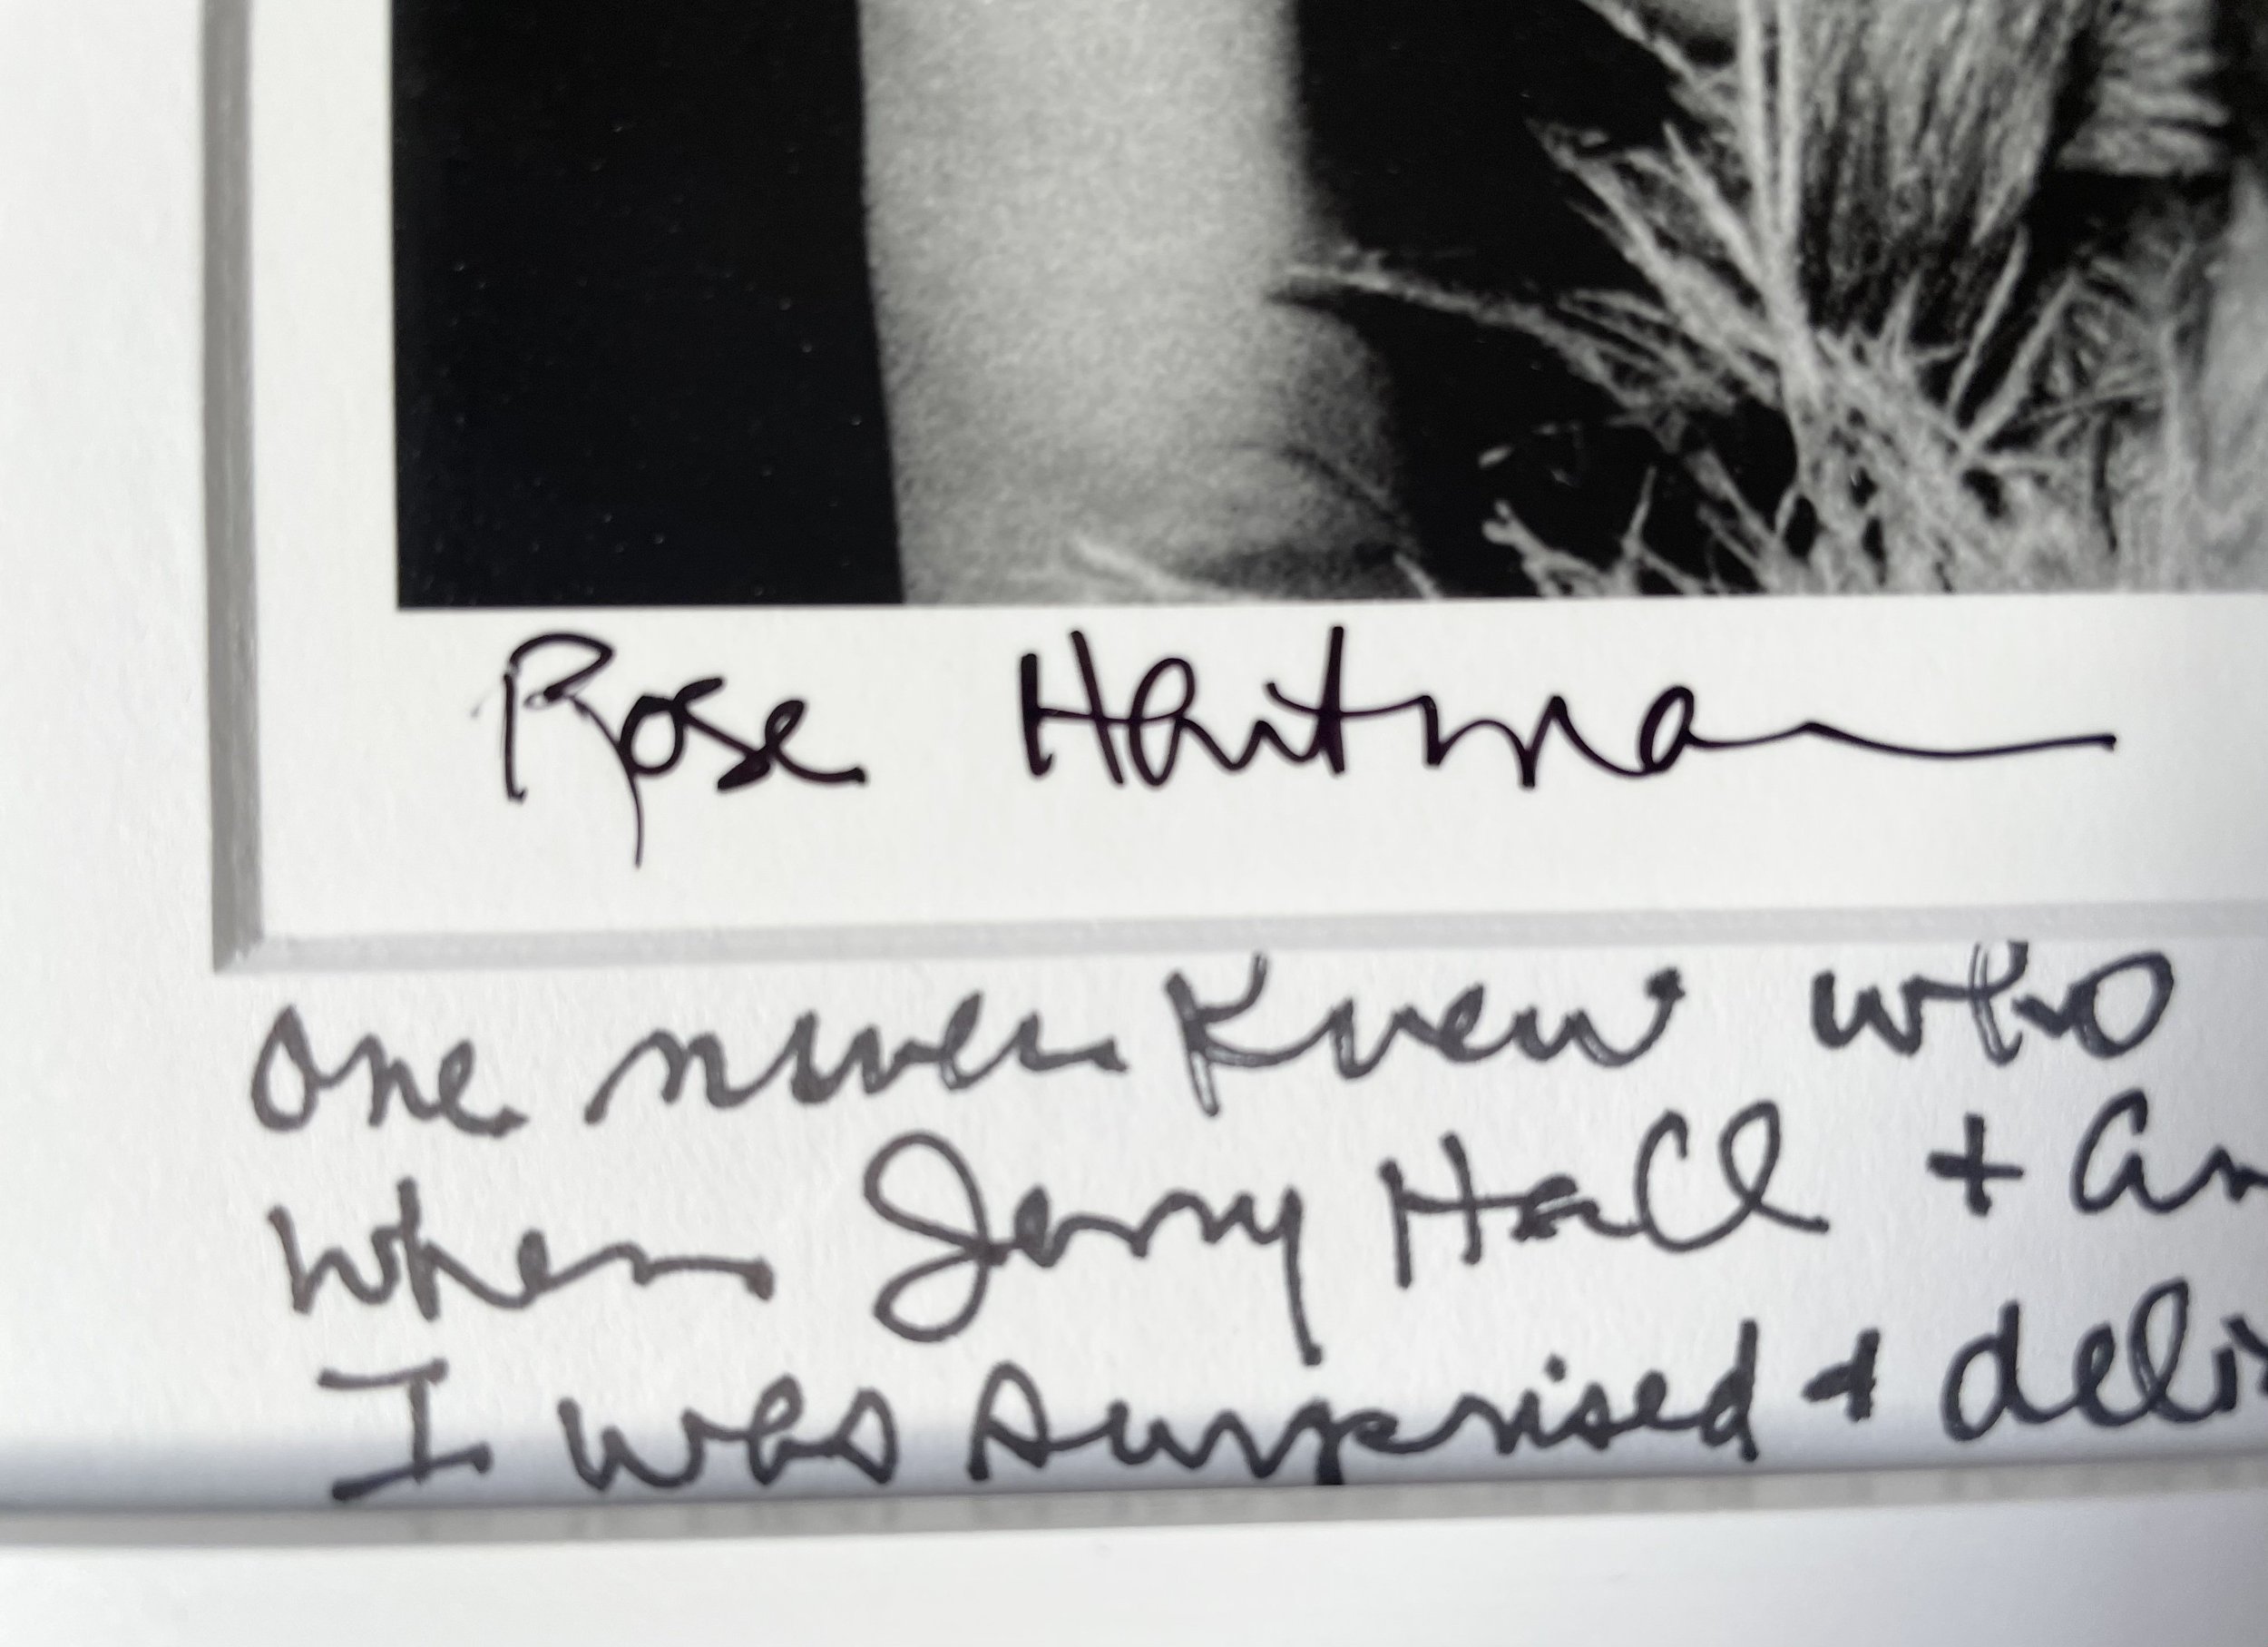 Rose Hartman
one never knew who
when Jerry Hall + An
I was surprised + deli